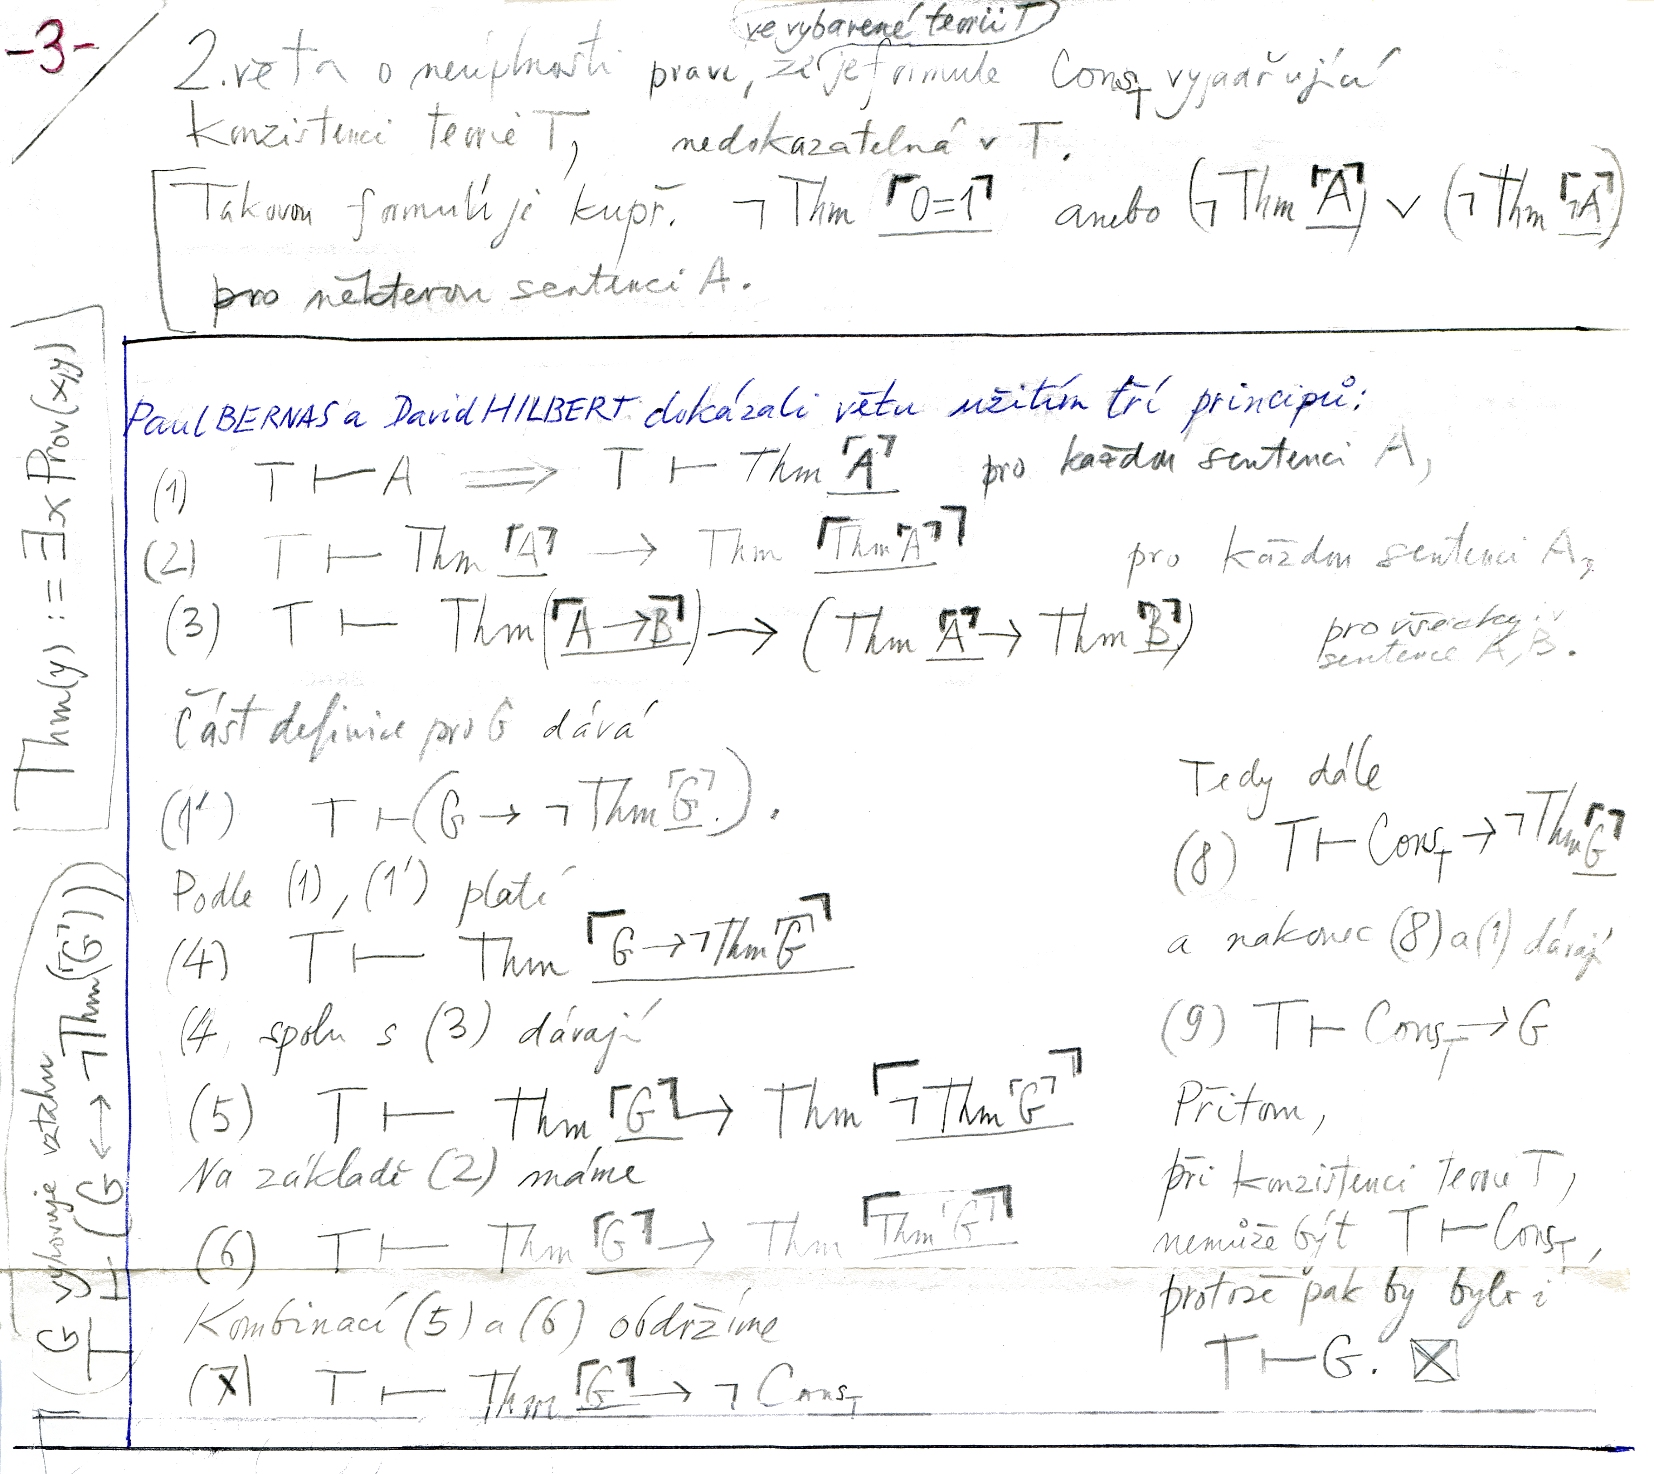 -3-
ve vybarené teorii T
2. věta o neúplnosti praví, že je formule Cons_T vyjadřující
konzistenci teorie T, nedokazatelná v T.
Takovou formulí je kupř. ¬Thm ⌜0=1⌝ anebo (¬Thm ⌜A⌝) ∨ (¬Thm ⌜¬A⌝)
pro některou sentenci A.
Paul BERNAS a David HILBERT dokázali větu užitím tří principů:
(1) T ⊢ A ⟹ T ⊢ Thm ⌜A⌝ pro každou sentenci A,
(2) T ⊢ Thm ⌜A⌝ → Thm ⌜Thm ⌜A⌝⌝ pro každou sentenci A,
(3) T ⊢ Thm(⌜A→B⌝) → (Thm ⌜A⌝ → Thm ⌜B⌝) pro všecky
sentence A, B.
Část definice pro G dává
(1') T ⊢ (G → ¬Thm ⌜G⌝).
Podle (1), (1') platí
(4) T ⊢ Thm ⌜G → ¬Thm ⌜G⌝⌝
(4 spolu s (3) dávají
(5) T ⊢ Thm ⌜G⌝ → Thm ⌜¬Thm ⌜G⌝⌝
Na základě (2) máme
(6) T ⊢ Thm ⌜G⌝ → Thm ⌜Thm ⌜G⌝⌝
Kombinací (5) a (6) obdržíme
(7) T ⊢ Thm ⌜G⌝ → ¬Cons_T
Tedy dále
(8) T ⊢ Cons_T → ¬Thm ⌜G⌝
a nakonec (8) a (1) dávají
(9) T ⊢ Cons_T → G
Přitom,
při konzistenci teorie T,
nemůže být T ⊢ Cons_T,
protože pak by bylo i
T ⊢ G. ☒
Thm(y) :≡ ∃x Prov(x,y)
G vyhovuje vztahu
T ⊢ (G ↔ ¬Thm(⌜G⌝))